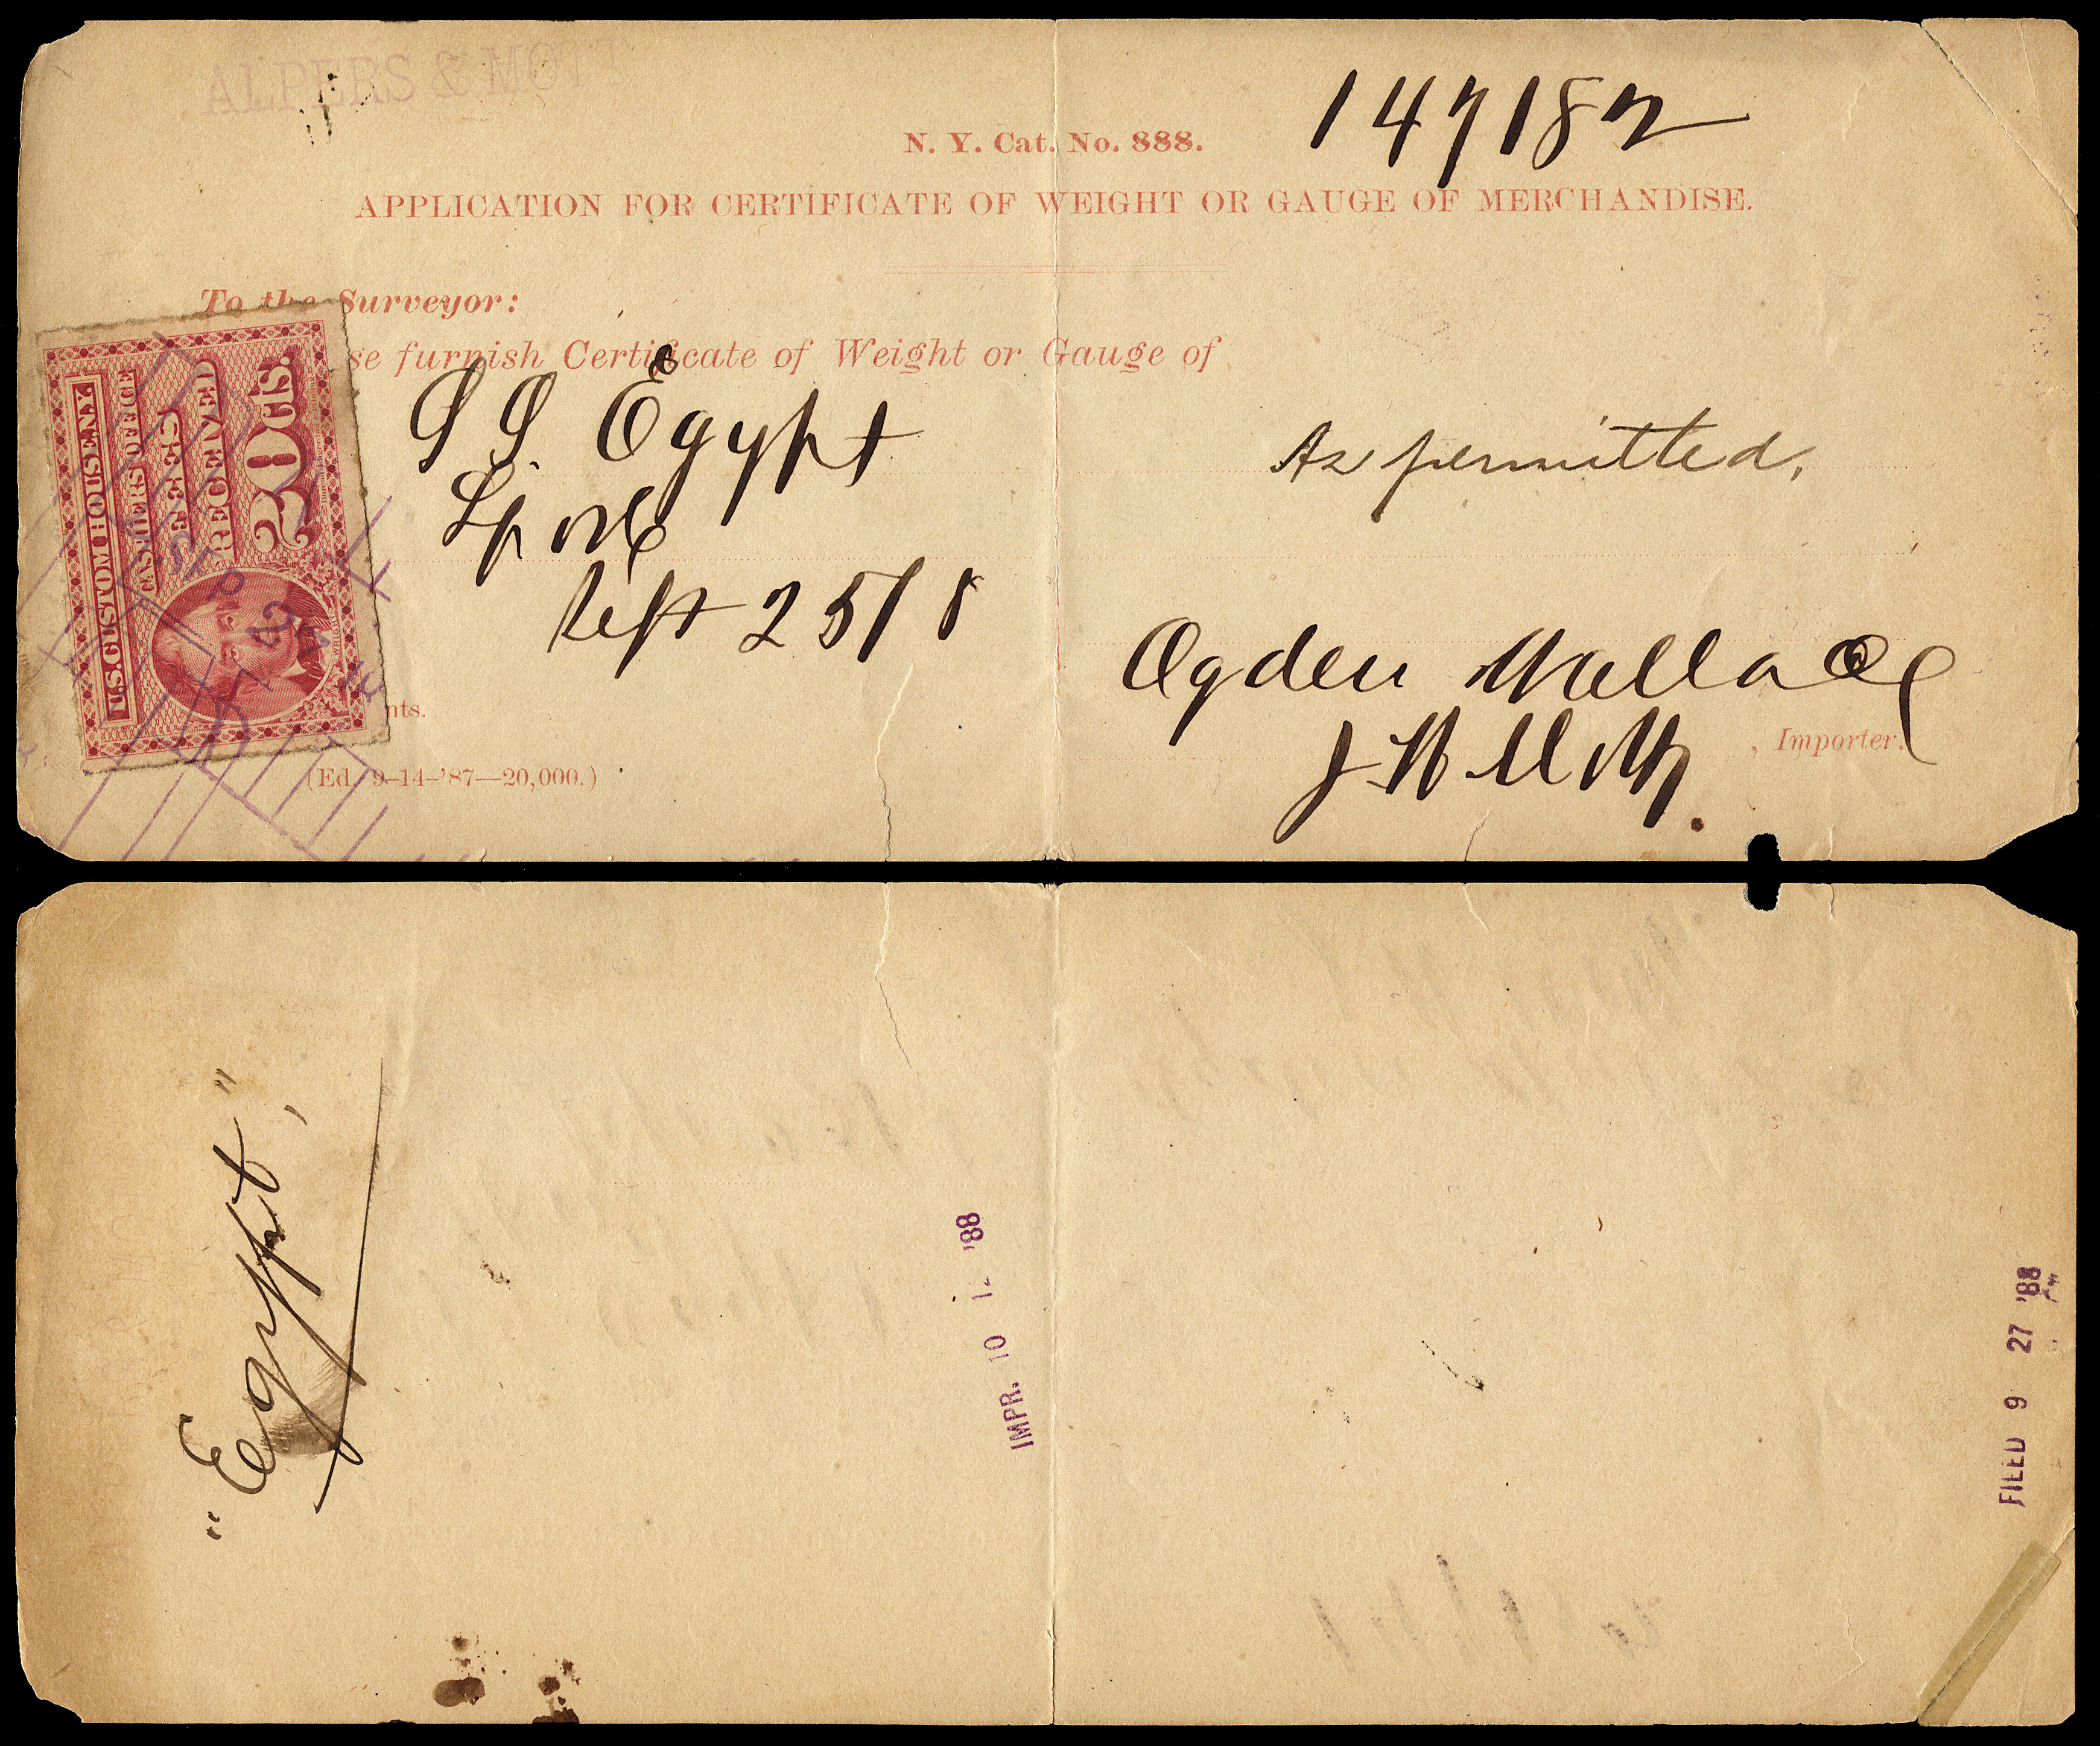 ALPERS & MOTT
147182
N. Y. Cat. No. 888.
APPLICATION FOR CERTIFICATE OF WEIGHT OR GAUGE OF MERCHANDISE.
To the Surveyor:
se furnish Certificate of Weight or Gauge of
S S. Egypt
As permitted,
Sept 25/8
Ogden Wallace
, Importer.
nts.
(Ed. 9–14–'87—20,000.)
U.S. CUSTOM HOUSE N.Y.
CASHIER'S OFFICE
FEES
RECEIVED
20 cts.
SEP
"Egypt,"
IMPR. 10 1 '88
FILED 9 27 '88